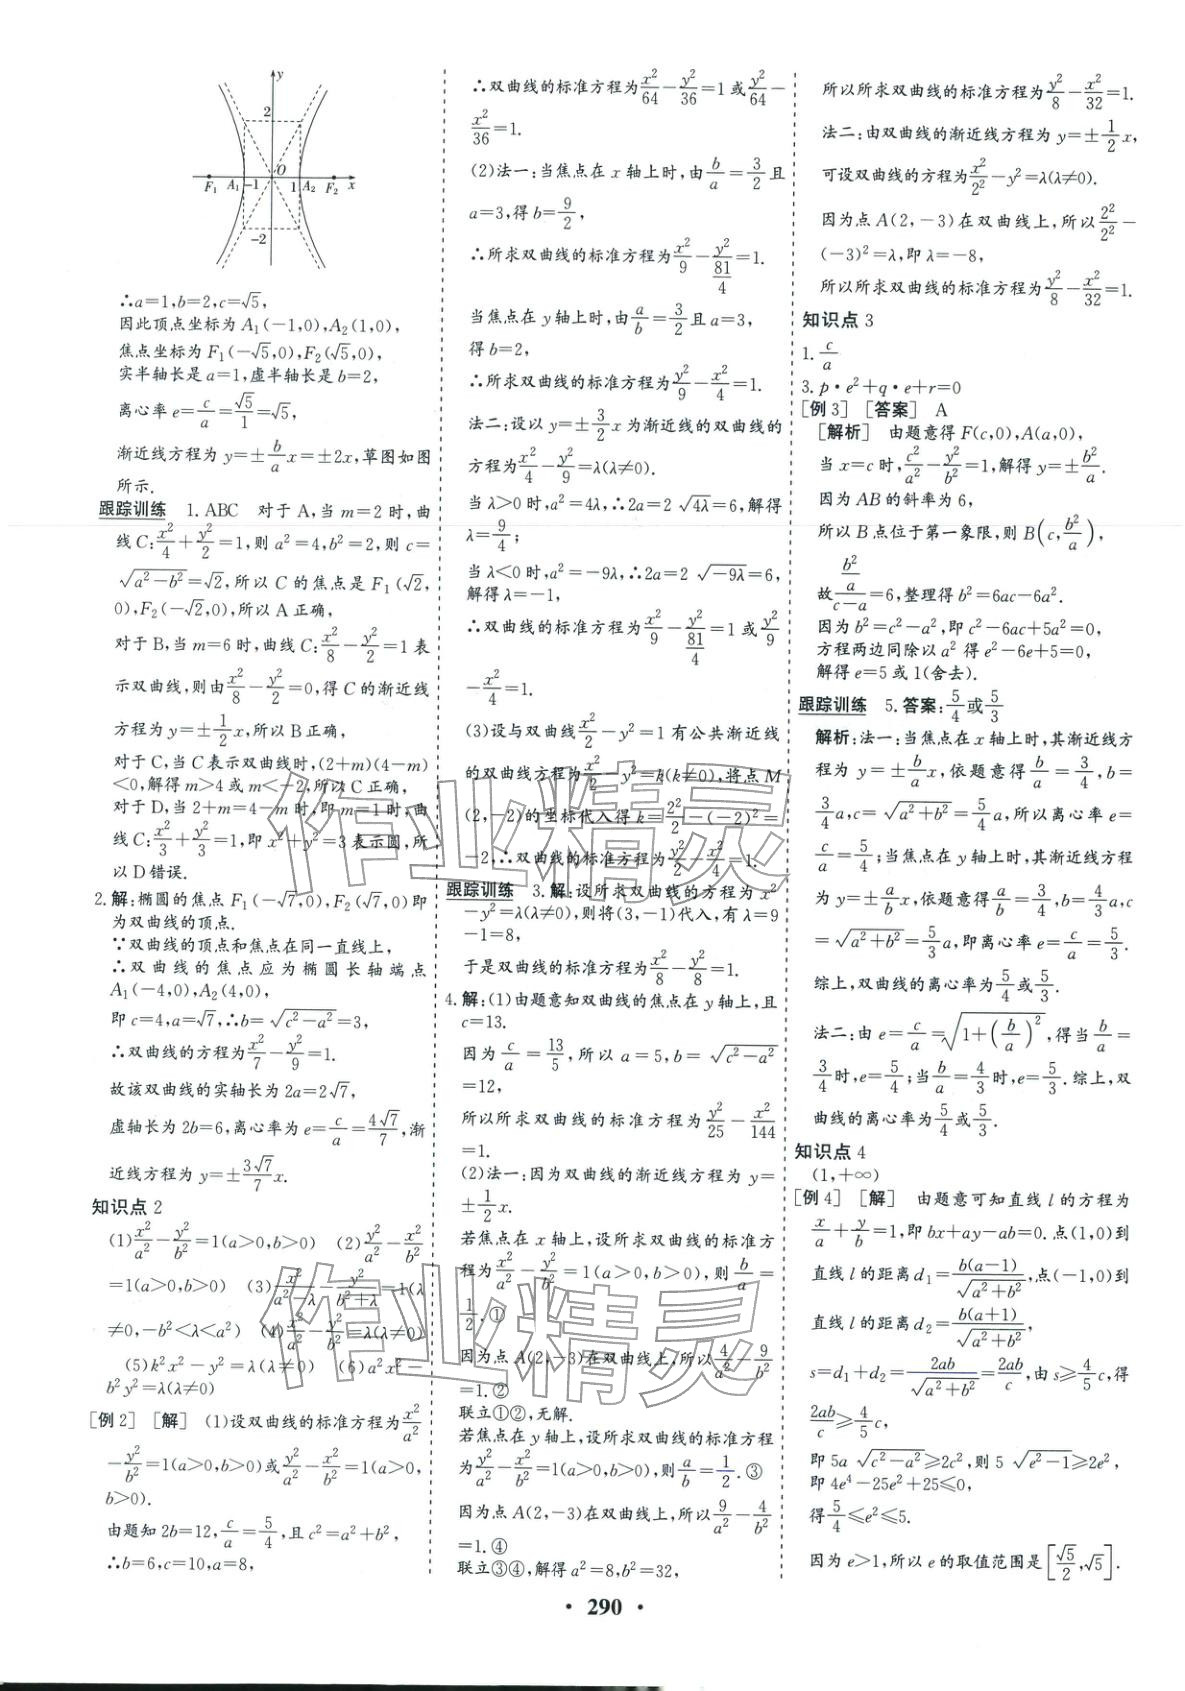 y
2
O
F₁ A₁ -1 1 A₂ F₂ x
-2
∴a=1,b=2,c=√5,
因此顶点坐标为 A₁(-1,0),A₂(1,0),
焦点坐标为 F₁(-√5,0),F₂(√5,0),
实半轴长是 a=1,虚半轴长是 b=2,
离心率 e=c/a=√5/1=√5,
渐近线方程为 y=±b/a x=±2x,草图如图
所示.
跟踪训练 1. ABC 对于 A,当 m=2 时,曲
线 C:x²/4+y²/2=1,则 a²=4,b²=2,则 c=
√(a²-b²)=√2,所以 C 的焦点是 F₁(√2,
0),F₂(-√2,0),所以 A 正确,
对于 B,当 m=6 时,曲线 C:x²/8-y²/2=1 表
示双曲线,则由x²/8-y²/2=0,得 C 的渐近线
方程为 y=±1/2 x,所以 B 正确,
对于 C,当 C 表示双曲线时,(2+m)(4-m)
<0,解得 m>4 或 m<-2,所以 C 正确,
对于 D,当 2+m=4-m 时,即 m=1 时,曲
线 C:x²/3+y²/3=1,即 x²+y²=3 表示圆,所
以 D 错误.
2. 解:椭圆的焦点 F₁(-√7,0),F₂(√7,0)即
为双曲线的顶点.
∵双曲线的顶点和焦点在同一直线上,
∴双曲线的焦点应为椭圆长轴端点
A₁(-4,0),A₂(4,0),
即 c=4,a=√7,∴b=√(c²-a²)=3,
∴双曲线的方程为x²/7-y²/9=1.
故该双曲线的实轴长为 2a=2√7,
虚轴长为 2b=6,离心率为 e=c/a=4√7/7,渐
近线方程为 y=±3√7/7 x.
知识点 2
(1)x²/a²-y²/b²=1(a>0,b>0) (2)y²/a²-x²/b²
=1(a>0,b>0) (3)x²/(a²-λ)-y²/(b²+λ)=1(λ
≠0,-b²<λ<a²) (4)x²/a²-y²/b²=λ(λ≠0)
(5)k²x²-y²=λ(λ≠0) (6)a²x²-
b²y²=λ(λ≠0)
[例 2] [解] (1)设双曲线的标准方程为x²/a²
-y²/b²=1(a>0,b>0)或y²/a²-x²/b²=1(a>0,
b>0).
由题知 2b=12,c/a=5/4,且 c²=a²+b²,
∴b=6,c=10,a=8,
∴双曲线的标准方程为x²/64-y²/36=1 或y²/64-
x²/36=1.
(2)法一:当焦点在 x 轴上时,由b/a=3/2且
a=3,得 b=9/2,
∴所求双曲线的标准方程为x²/9-y²/(81/4)=1.
当焦点在 y 轴上时,由a/b=3/2且 a=3,
得 b=2,
∴所求双曲线的标准方程为y²/9-x²/4=1.
法二:设以 y=±3/2 x 为渐近线的双曲线的
方程为x²/4-y²/9=λ(λ≠0).
当 λ>0 时,a²=4λ,∴2a=2√(4λ)=6,解得
λ=9/4;
当 λ<0 时,a²=-9λ,∴2a=2√(-9λ)=6,
解得 λ=-1,
∴双曲线的标准方程为x²/9-y²/(81/4)=1 或y²/9
-x²/4=1.
(3)设与双曲线x²/2-y²=1 有公共渐近线
的双曲线方程为x²/2-y²=k(k≠0),将点 M
(2,-2)的坐标代入得 k=2²/2-(-2)²=
-2,∴双曲线的标准方程为y²/2-x²/4=1.
跟踪训练 3. 解:设所求双曲线的方程为 x²
-y²=λ(λ≠0),则将(3,-1)代入,有 λ=9
-1=8,
于是双曲线的标准方程为x²/8-y²/8=1.
4. 解:(1)由题意知双曲线的焦点在 y 轴上,且
c=13.
因为c/a=13/5,所以 a=5,b=√(c²-a²)
=12,
所以所求双曲线的标准方程为y²/25-x²/144
=1.
(2)法一:因为双曲线的渐近线方程为 y=
±1/2 x.
若焦点在 x 轴上,设所求双曲线的标准方
程为x²/a²-y²/b²=1(a>0,b>0),则b/a=
1/2. ①
因为点 A(2,-3)在双曲线上,所以4/a²-9/b²
=1. ②
联立①②,无解.
若焦点在 y 轴上,设所求双曲线的标准方程
为y²/a²-x²/b²=1(a>0,b>0),则a/b=1/2. ③
因为点 A(2,-3)在双曲线上,所以9/a²-4/b²
=1. ④
联立③④,解得 a²=8,b²=32,
所以所求双曲线的标准方程为y²/8-x²/32=1.
法二:由双曲线的渐近线方程为 y=±1/2 x,
可设双曲线的方程为x²/2²-y²=λ(λ≠0).
因为点 A(2,-3)在双曲线上,所以2²/2²-
(-3)²=λ,即 λ=-8,
所以所求双曲线的标准方程为y²/8-x²/32=1.
知识点 3
1. c/a
3. p·e²+q·e+r=0
[例 3] [答案] A
[解析] 由题意得 F(c,0),A(a,0),
当 x=c 时,c²/a²-y²/b²=1,解得 y=±b²/a.
因为 AB 的斜率为 6,
所以 B 点位于第一象限,则 B(c,b²/a),
故(b²/a)/(c-a)=6,整理得 b²=6ac-6a².
因为 b²=c²-a²,即 c²-6ac+5a²=0,
方程两边同除以 a² 得 e²-6e+5=0,
解得 e=5 或 1(舍去).
跟踪训练 5. 答案:5/4或5/3
解析:法一:当焦点在 x 轴上时,其渐近线方
程为 y=±b/a x,依题意得b/a=3/4,b=
3/4 a,c=√(a²+b²)=5/4 a,所以离心率 e=
c/a=5/4;当焦点在 y 轴上时,其渐近线方程
为 y=±a/b x,依题意得a/b=3/4,b=4/3 a,c
=√(a²+b²)=5/3 a,即离心率 e=c/a=5/3.
综上,双曲线的离心率为5/4或5/3.
法二:由 e=c/a=√(1+(b/a)²),得当b/a=
3/4时,e=5/4;当b/a=4/3时,e=5/3. 综上,双
曲线的离心率为5/4或5/3.
知识点 4
(1,+∞)
[例 4] [解] 由题意可知直线 l 的方程为
x/a+y/b=1,即 bx+ay-ab=0. 点(1,0)到
直线 l 的距离 d₁=b(a-1)/√(a²+b²),点(-1,0)到
直线 l 的距离 d₂=b(a+1)/√(a²+b²),
s=d₁+d₂=2ab/√(a²+b²)=2ab/c,由 s≥4/5 c,得
2ab/c≥4/5 c,
即 5a√(c²-a²)≥2c²,则 5√(e²-1)≥2e²,
即 4e⁴-25e²+25≤0,
得5/4≤e²≤5.
因为 e>1,所以 e 的取值范围是[√5/2,√5].
· 290 ·
作业精灵
作业精灵